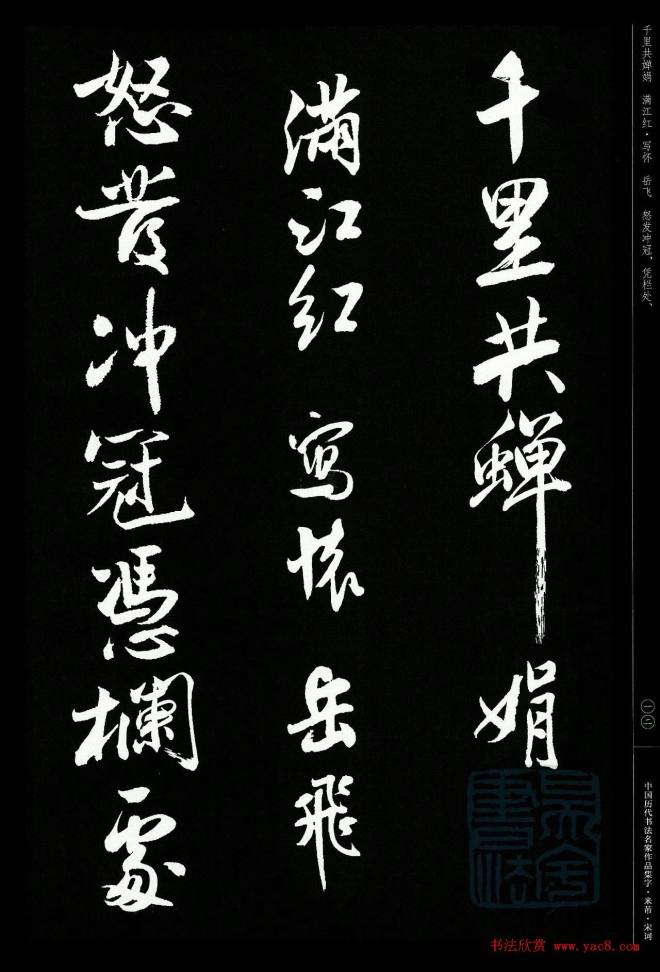 千里共蝉娟
满江红 写怀 岳飞
怒发冲冠憑欄處
千里共婵娟 满江红·写怀 岳飞 怒发冲冠,凭栏处、
一二
中国历代书法名家作品集字·米芾·宋词
书法欣赏 www.yac8.com